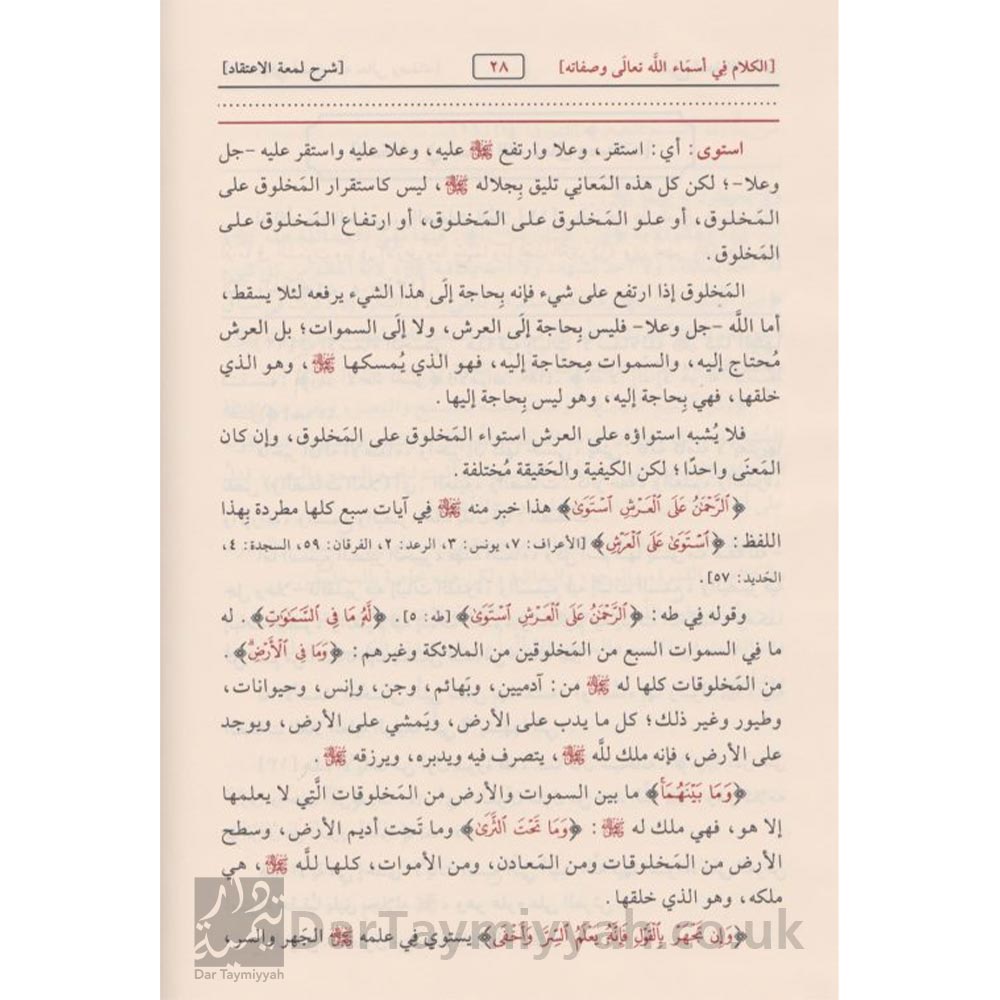 [الكلام في أسماء اللَّه تعالى وصفاته] ٢٨ [شرح لمعة الاعتقاد]
استوى: أي: استقر، وعلا وارتفع ﷻ عليه، وعلا عليه واستقر عليه -جل
وعلا-؛ لكن كل هذه المَعاني تليق بِجلاله ﷻ، ليس كاستقرار المَخلوق على
المَخلوق، أو علو المَخلوق على المَخلوق، أو ارتفاع المَخلوق على
المَخلوق.
المَخلوق إذا ارتفع على شيء فإنه بِحاجة إلَى هذا الشيء يرفعه لئلا يسقط،
أما اللَّه -جل وعلا- فليس بِحاجة إلَى العرش، ولا إلَى السموات؛ بل العرش
مُحتاج إليه، والسموات مِحتاجة إليه، فهو الذي يُمسكها ﷻ، وهو الذي
خلقها، فهي بِحاجة إليه، وهو ليس بِحاجة إليها.
فلا يُشبه استواؤه على العرش استواء المَخلوق على المَخلوق، وإن كان
المَعنَى واحدًا؛ لكن الكيفية والحَقيقة مُختلفة.
﴿ٱلرَّحْمَٰنُ عَلَى ٱلْعَرْشِ ٱسْتَوَىٰ﴾ هذا خبر منه ﷻ فِي آيات سبع كلها مطردة بِهذا
اللفظ: ﴿ٱسْتَوَىٰ عَلَى ٱلْعَرْشِ﴾ [الأعراف: ٧، يونس: ٣، الرعد: ٢، الفرقان: ٥٩، السجدة: ٤،
الحَديد: ٥٧].
وقوله فِي طه: ﴿ٱلرَّحْمَٰنُ عَلَى ٱلْعَرْشِ ٱسْتَوَىٰ﴾ [طه: ٥]. ﴿لَهُۥ مَا فِى ٱلسَّمَٰوَٰتِ﴾. له
ما فِي السموات السبع من المَخلوقين من الملائكة وغيرهم: ﴿وَمَا فِى ٱلْأَرْضِ﴾.
من المَخلوقات كلها له ﷻ من: آدميين، وبَهائم، وجن، وإنس، وحيوانات،
وطيور وغير ذلك؛ كل ما يدب على الأرض، ويَمشي على الأرض، ويوجد
على الأرض، فإنه ملك للَّه ﷻ، يتصرف فيه ويدبره، ويرزقه ﷻ.
﴿وَمَا بَيْنَهُمَا﴾ ما بين السموات والأرض من المَخلوقات الَّتي لا يعلمها
إلا هو، فهي ملك له ﷻ: ﴿وَمَا تَحْتَ ٱلثَّرَىٰ﴾ وما تَحت أديم الأرض، وسطح
الأرض من المَخلوقات ومن المَعادن، ومن الأموات، كلها للَّه ﷻ، هي
ملكه، وهو الذي خلقها.
﴿وَإِن تَجْهَرْ بِٱلْقَوْلِ فَإِنَّهُۥ يَعْلَمُ ٱلسِّرَّ وَأَخْفَى﴾ يستوي فِي علمه ﷻ الجَهر والسر،
دار تيمية
Dar Taymiyyah
DarTaymiyyah.co.uk